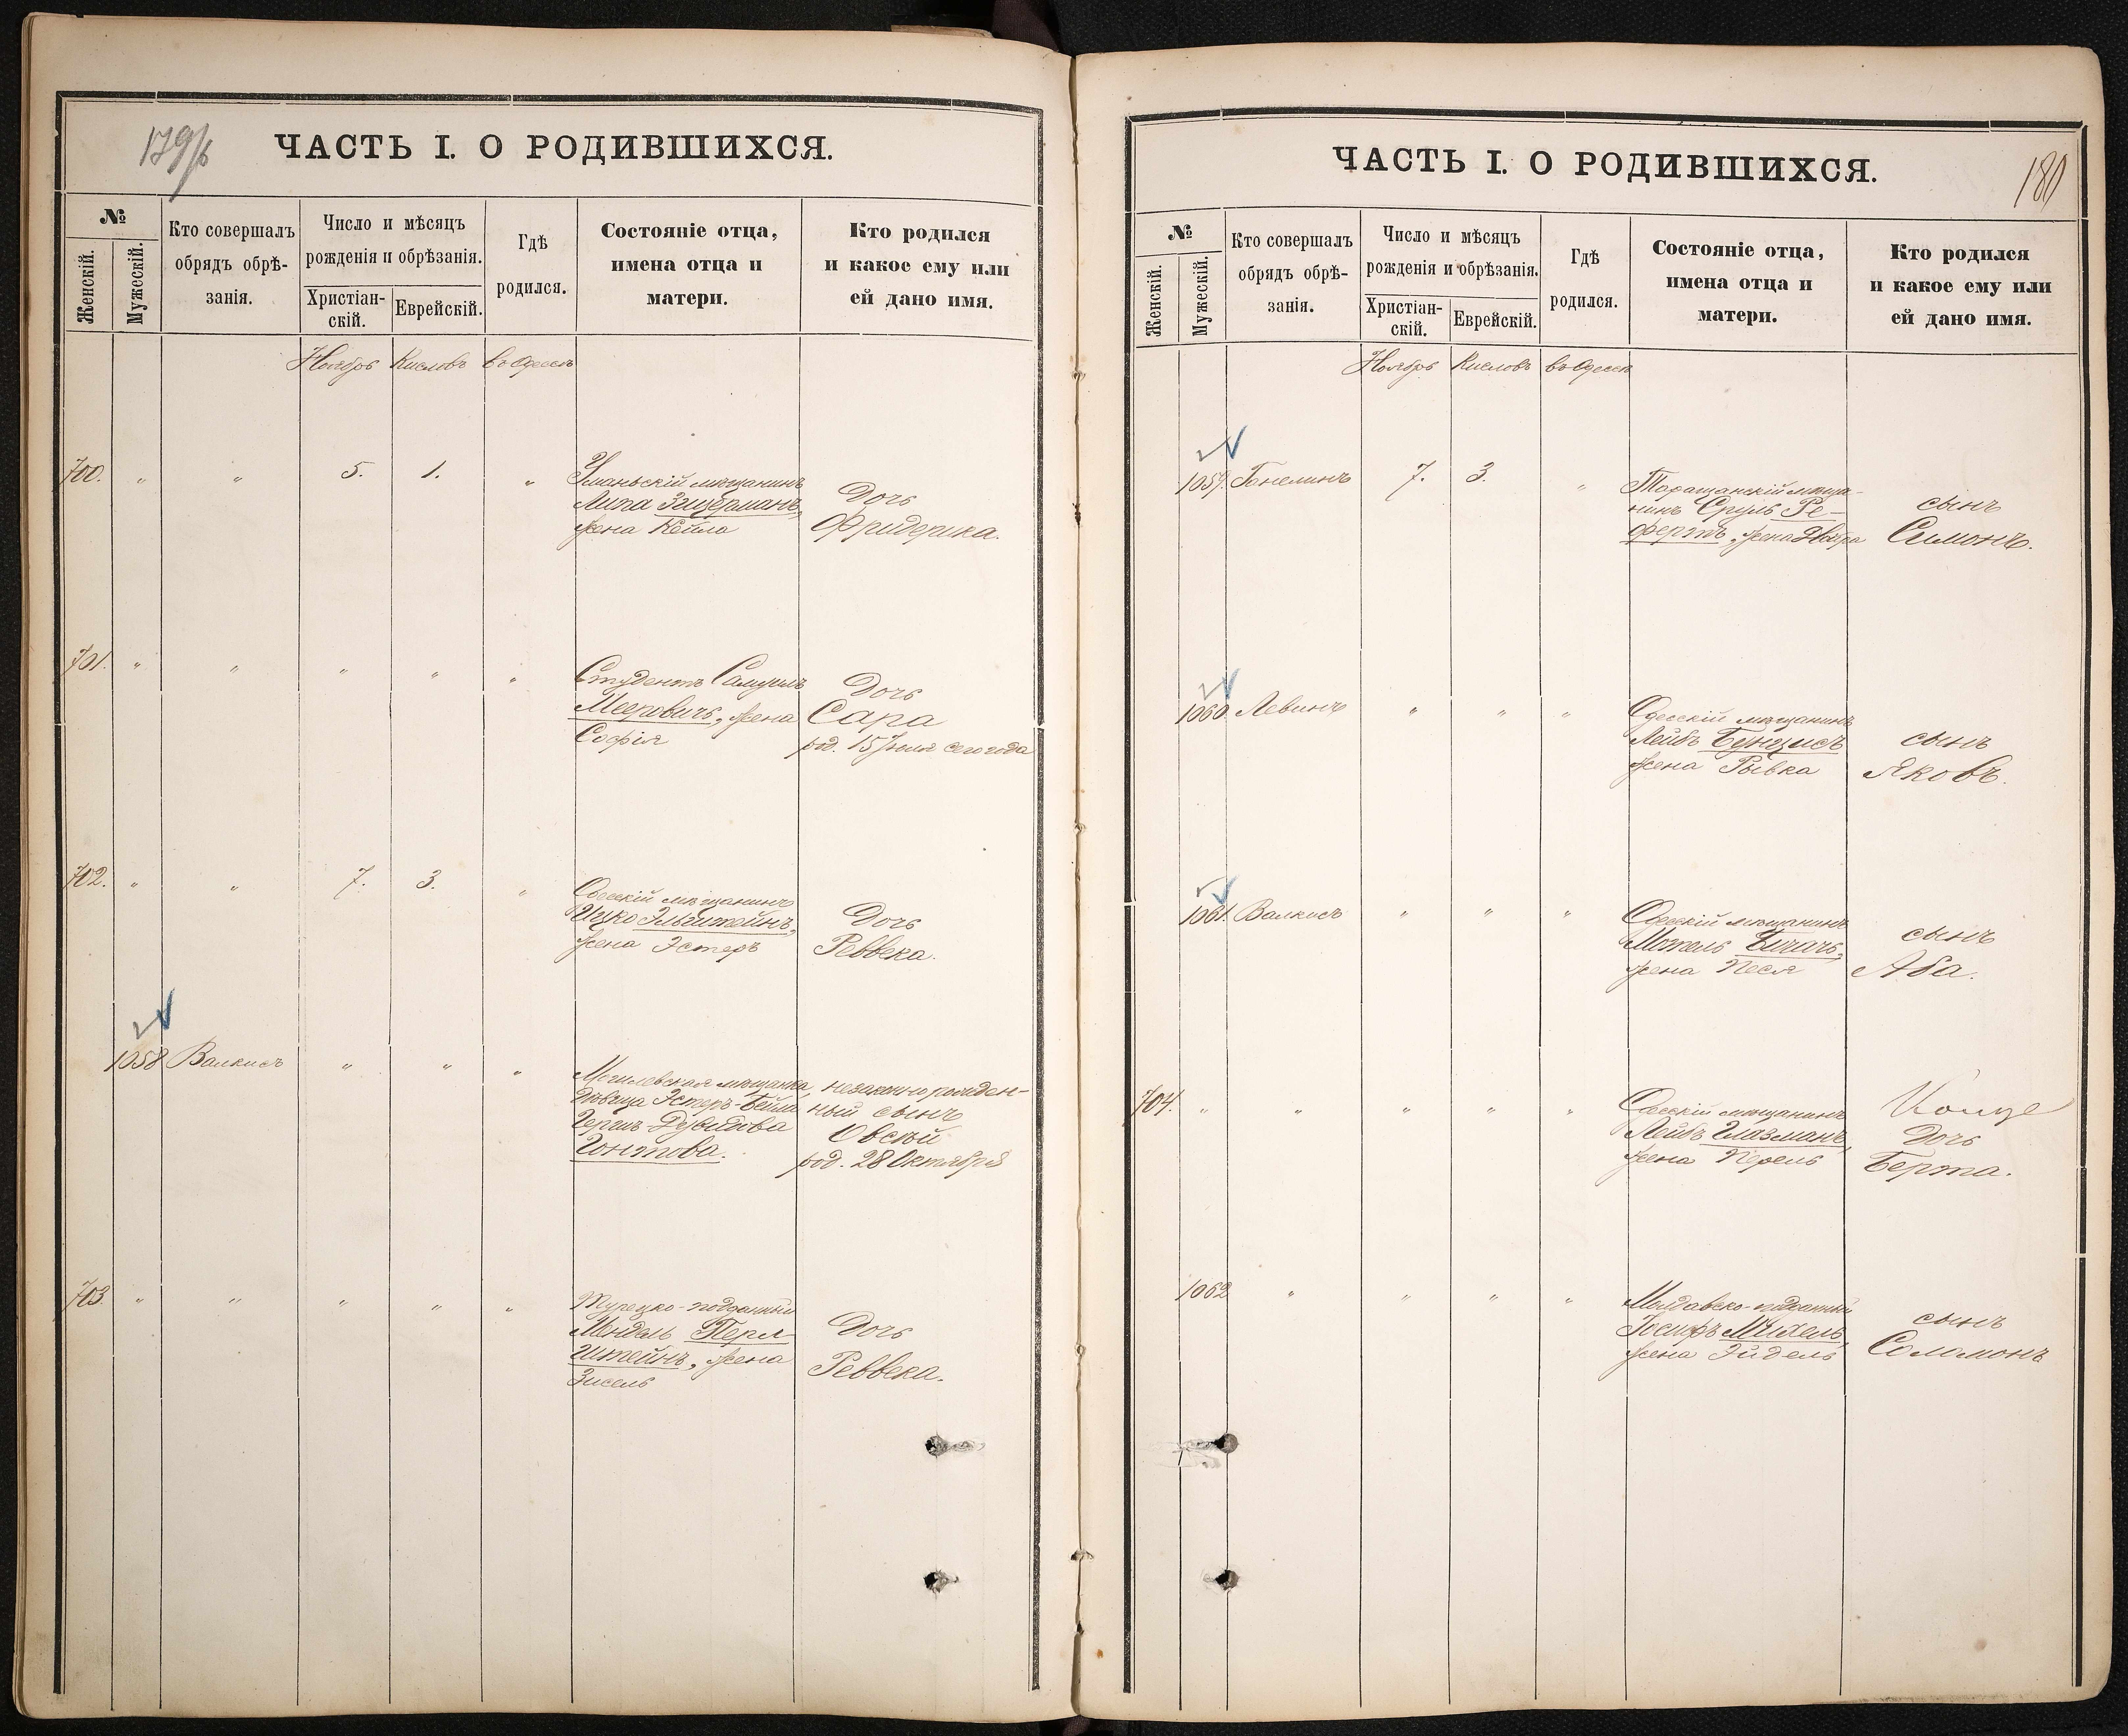 179/б
ЧАСТЬ I. О РОДИВШИХСЯ.
№
Женскій.
Мужескій.
Кто совершалъ
обрядъ обрѣ-
занія.
Число и мѣсяцъ
рожденія и обрѣзанія.
Христіан-
скій.
Еврейскій.
Гдѣ
родился.
Состояніе отца,
имена отца и
матери.
Кто родился
и какое ему или
ей дано имя.
Ноябрь Кислевъ въ Одессѣ
700. " " 5. 1. "
Уманьскій мѣщанинъ
Липа Зицерманъ,
жена Кейла
Дочь
Фридерика.
701. " " " " "
Студентъ Самуилъ
Мееровичъ, жена
Софія
Дочь
Сара
род. 15 Іюля сего года
702. " " 7. 3. "
Одесскій мѣщанинъ
Ицко Эльштейнъ,
жена Эстеръ
Дочь
Реввека.
1058 Валкисъ " " "
Могилевская мѣщанка,
дѣвица Эстеръ-Бейла
Гершъ Давидова
Гонтова.
незаконнорожден-
ный сынъ
Овсѣй
род. 28 Октября
703. " " " " "
Турецко-подданный
Мендель Перл-
штейнъ, жена
Зисель
Дочь
Реввека.
ЧАСТЬ I. О РОДИВШИХСЯ.
180
№
Женскій.
Мужескій.
Кто совершалъ
обрядъ обрѣ-
занія.
Число и мѣсяцъ
рожденія и обрѣзанія.
Христіан-
скій.
Еврейскій.
Гдѣ
родился.
Состояніе отца,
имена отца и
матери.
Кто родился
и какое ему или
ей дано имя.
Ноябрь Кислевъ въ Одессѣ
1059. 7. 3. "
Таращанскій мѣща-
нинъ Сруль Ре-
фертъ, жена Двойра
сынъ
Симонъ.
1060 Левинъ " " "
Одесскій мѣщанинъ
Лейбъ Бунцисъ
жена Рывка
сынъ
Яковъ.
1061. Валкисъ " " "
Одесскій мѣщанинъ
Мотель
жена Песя
сынъ
Аба.
704. " " " " "
Одесскій мѣщанинъ
Лейбъ Глазманъ,
жена Перель
Дочь
Берта.
1062 " " " "
Молдавско-подданный
Іосифъ Михель,
жена Эйдель
сынъ
Соломонъ